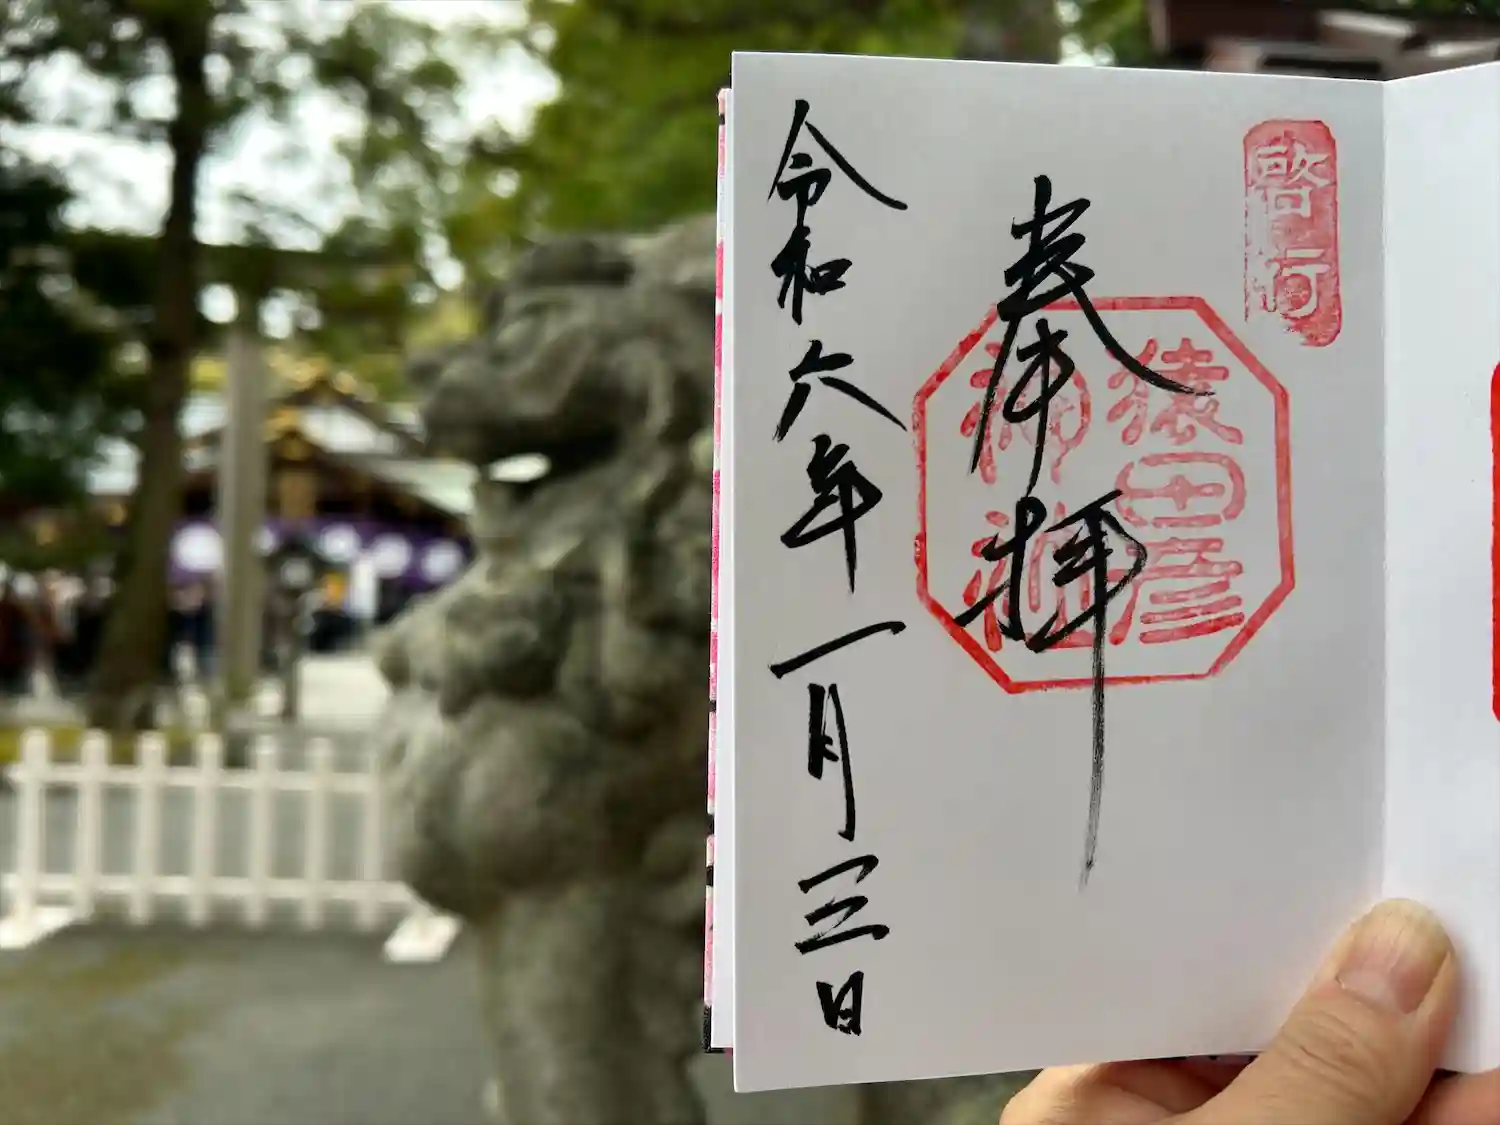 啓行
奉拝
猿田彦
神社
令和六年一月三日